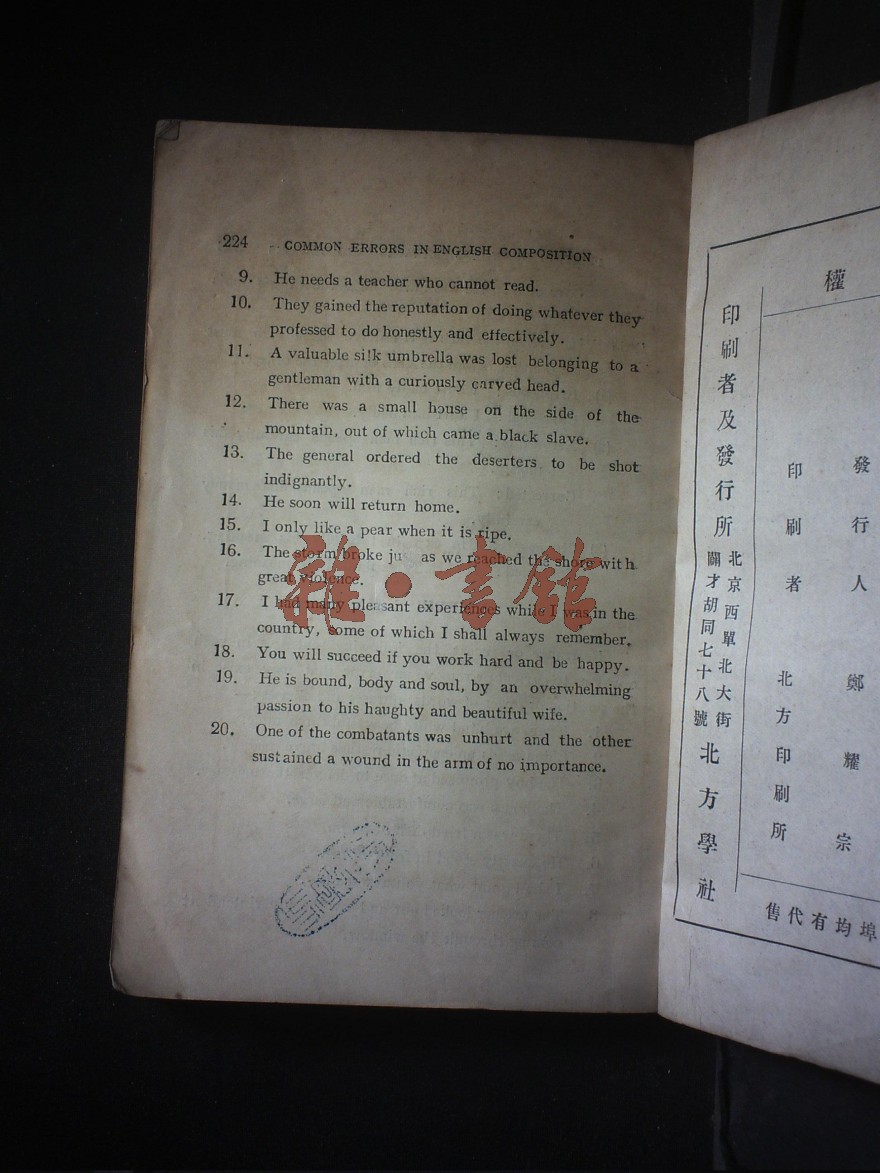 224 COMMON ERRORS IN ENGLISH COMPOSITION
9. He needs a teacher who cannot read.
10. They gained the reputation of doing whatever they
professed to do honestly and effectively.
11. A valuable silk umbrella was lost belonging to a
gentleman with a curiously carved head.
12. There was a small house on the side of the
mountain, out of which came a black slave.
13. The general ordered the deserters to be shot
indignantly.
14. He soon will return home.
15. I only like a pear when it is ripe.
16. The storm broke jus as we reached the shore with
great violence.
17. I had many pleasant experiences while I was in the
country, some of which I shall always remember.
18. You will succeed if you work hard and be happy.
19. He is bound, body and soul, by an overwhelming
passion to his haughty and beautiful wife.
20. One of the combatants was unhurt and the other
sustained a wound in the arm of no importance.
雜·書館
權
發行人 鄭耀宗
印刷者 北方印刷所
印刷者及發行所
北京西單北大街
闢才胡同七十八號
北方學社
埠均有代售